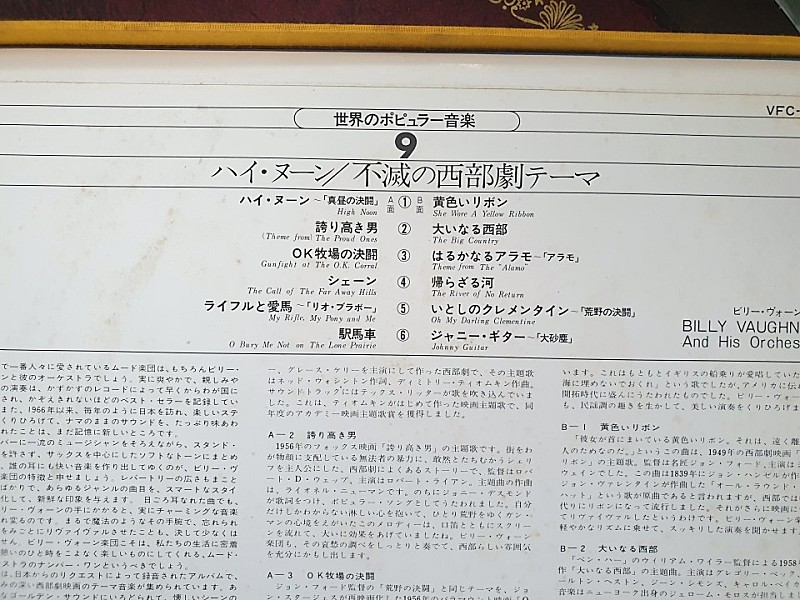 VFC-
世界のポピュラー音楽
9
ハイ・ヌーン/不滅の西部劇テーマ
A面 B面
ハイ・ヌーン〜「真昼の決闘」 ① 黄色いリボン
High Noon She Wore A Yellow Ribbon
誇り高き男 ② 大いなる西部
(Theme from) The Proud Ones The Big Country
OK牧場の決闘 ③ はるかなるアラモ〜「アラモ」
Gunfight at The O.K. Corral Theme from The "Alamo"
シェーン ④ 帰らざる河
The Call of The Far Away Hills The River of No Return
ライフルと愛馬〜「リオ・ブラボー」 ⑤ いとしのクレメンタイン〜「荒野の決闘」
My Rifle, My Pony and Me Oh My Darling Clementine
駅馬車 ⑥ ジャニー・ギター〜「大砂塵」
O Bury Me Not on The Lone Prairie Johnny Guitar
ビリー・ヴォーン
BILLY VAUGHN
And His Orches
て一番人々に愛されているムード楽団は、もちろんビリー・
ンと彼のオーケストラでしょう。実に爽やかで、親しみや
の演奏は、かずかずのレコードによって早くからわが国に
され、かぞえきれないほどのベスト・セラーを記録してい
また、1966年以来、毎年のように日本を訪れ、楽しいステ
くりひろげて、ナマのままのサウンドを、たっぷり味あわ
れたことは、まだ記憶に新しいところです。
バーに一流のミュージシャンをそろえながら、スタンド・
を許さず、サックスを中心にしたソフトなトーンにまとめ
、誰の耳にも快い音楽を作り出してゆくのが、ビリー・ヴ
楽団の特徴と申せましょう。レパートリーの広さもまこと
ばかりで、あらゆるジャンルの曲目を、スマートなスタイ
化して、新鮮な印象を与えます。日ごろ耳なれた曲でも、
リー・ヴォーンの手にかかると、実にチャーミングな音楽
れ変るのです。まるで魔法のようなその手腕で、忘れられ
みごとにリヴァイヴァルさせたことも、決して少なくは
せん。ビリー・ヴォーン楽団こそは、私たちの生活に密着
憩いのひと時をこよなく楽しいものにしてくれる、ムード・
ストラのナンバー・ワンというべきでしょう。
は、日本からのリクエストによって録音されたアルバムで、
みの深い西部劇映画のテーマ音楽が集められています。あ
なゴールデン・サウンドにいろどられて、懐しいシーンの
ー、グレース・ケリーを主演にして作った西部劇で、その主題歌
はネッド・ウォシントン作詞、ディミトリー・ティオムキン作曲。
サウンドトラックにはテックス・リッターが歌を吹き込んでいま
した。これは、ティオムキンがはじめて作った映画主題歌で、同
年度のアカデミー映画主題歌賞を獲得しました。
A－2 誇り高き男
1956年のフォックス映画「誇り高き男」の主題歌です。街をわ
が物顔に支配している無法者の暴力に、敢然とたちむかうシェリ
フを主人公にした、西部劇によくあるストーリーで、監督はロバ
ート・D・ウェッブ、主演はロバート・ライアン。主題曲の作曲
は、ライオネル・ニューマンです。のちにジョニー・デスモンド
が歌詞をつけ、ポピュラー・ソングとしてうたわれました。自分
だけしかわからない淋しい心を抱いて、ひとり荒野をゆくガン・
マンの心境をえがいたこのメロディーは、口笛とともにスクリー
ンを流れて、大いに効果をあげていましたね。ビリー・ヴォーン
楽団も、その哀愁の調べをしっとりと奏でて、西部らしい雰囲気
を充分にかもし出します。
A－3 OK牧場の決闘
ジョン・フォード監督の「荒野の決闘」と同じテーマを、ジョ
ン・スタージェスが再映画化した1956年のパラマウント映画「O
います。これはもともとイギリスの船乗りが愛唱していた
海に埋めないでおくれ」という歌でしたが、アメリカに伝
開拓時代に盛んにうたわれたものでした。ビリー・ヴォー
も、民謡調の趣きを生かして、美しい演奏をくりひろげま
B－1 黄色いリボン
「彼女が首にまいている黄色いリボン。それは、遠く離
人のためなのだ。」というこの曲は、1949年の西部劇映画「
リボン」の主題歌。監督は名匠ジョン・フォード、主演は
ウェインでした。この曲は1839年にジョン・ハンゼルが作
ジョン・ヴァレンタインが作曲した「オール・ラウンド・
ハット」という歌が原曲であると言われますが、西部では
代りにリボンになって流行しました。それがさらに映画に
てリヴァイヴァルしたというわけです。ビリー・ヴォーン
軽やかなリズムに乗せて、スッキリした演奏を聞かせます
B－2 大いなる西部
「ベン・ハー」のウイリアム・ワイラー監督による1958
作「大いなる西部」の主題曲。主演はグレゴリー・ペック
ールトン・ヘストン、ジーン・シモンズ、キャロル・ベイカ
音楽はニューヨーク出身のジェローム・モロスが担当しま